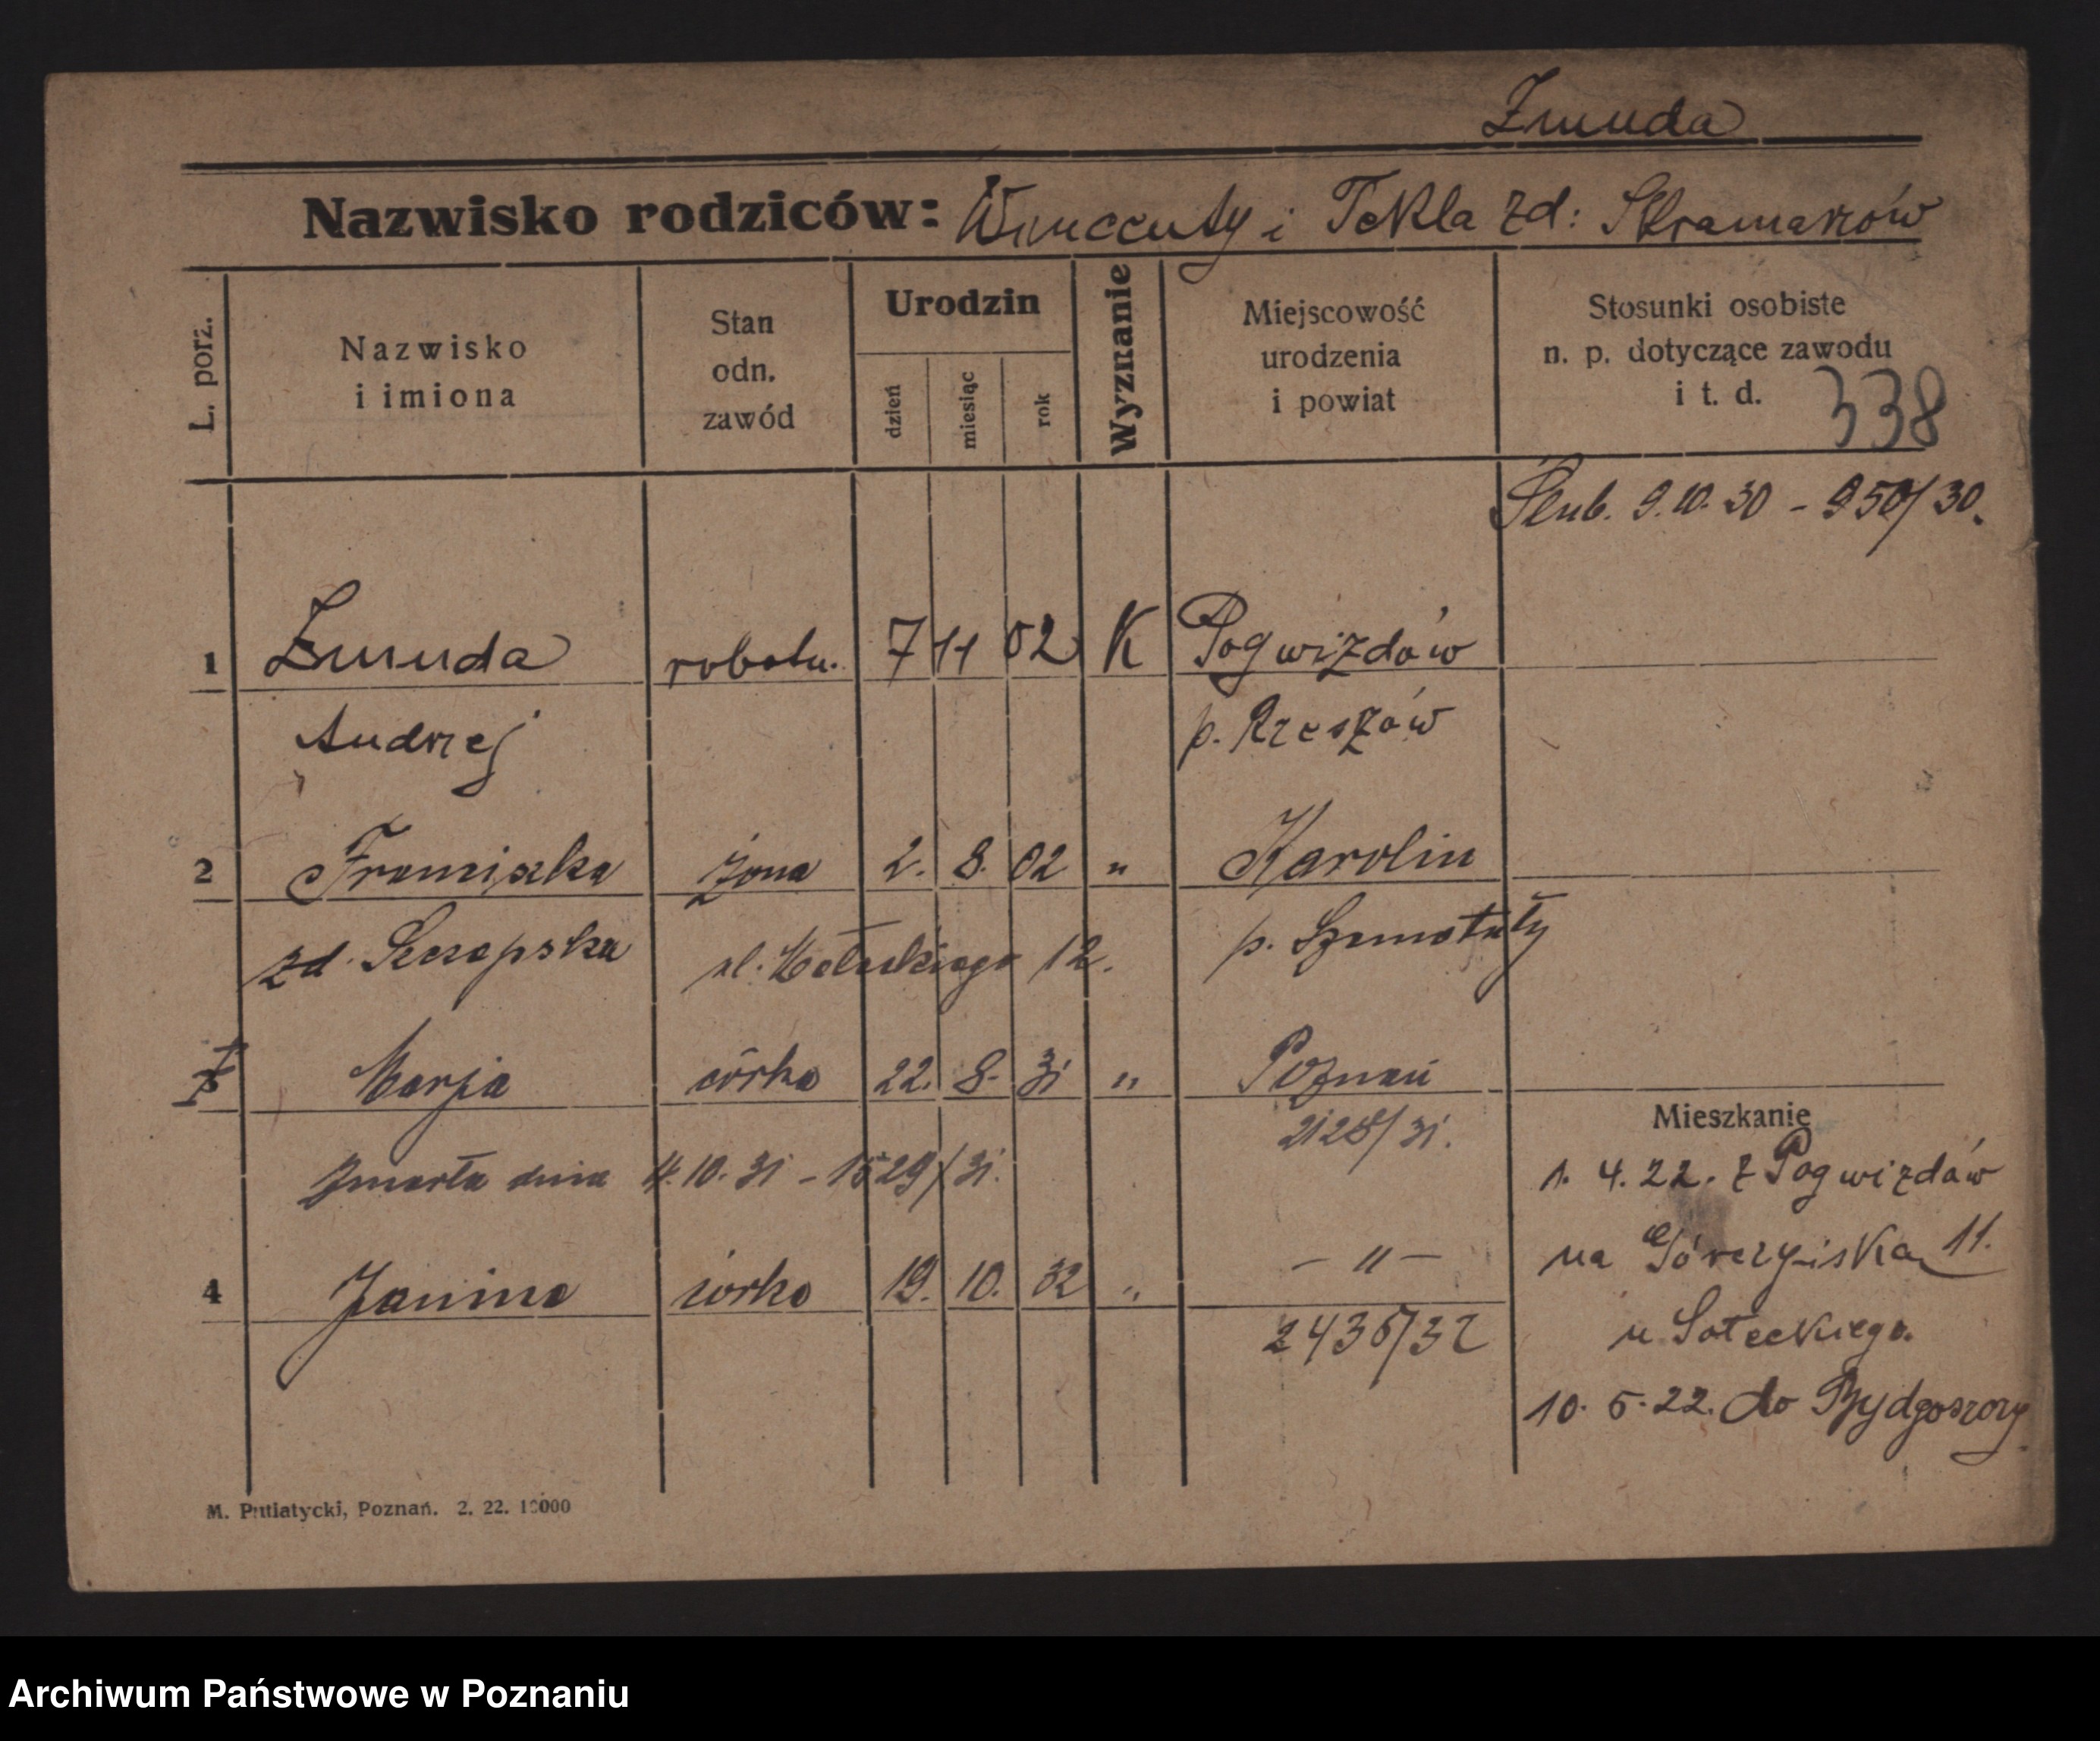 Żmuda
Nazwisko rodziców: Wincenty i Tekla zd: Skramarzów
L. porz.
Nazwisko
i imiona
Stan
odn.
zawód
Urodzin
dzień
miesiąc
rok
Wyznanie
Miejscowość
urodzenia
i powiat
Stosunki osobiste
n. p. dotyczące zawodu
i t. d.
338
Ślub. 9.10.30 - 950/30.
1 Żmuda robotn. 7 11 02 K Pogwizdów
Andrzej p. Rzeszów
2 Franciszka żona 2. 8. 02 " Karolin
zd. ul. 12. p. Szamotuły
Marja córka 22. 8. 31 " Poznań
2128/31.
Zmarła dnia 4.10.31 - 1529/31.
4 Janina córka 19. 10. 32 " - " -
2436/32
Mieszkanie
1. 4. 22. z Pogwizdów
na Górczyńska 11.
u Soteckiego.
10. 5. 22. do Bydgoszczy
M. Putiatycki, Poznań. 2. 22. 10000
Archiwum Państwowe w Poznaniu